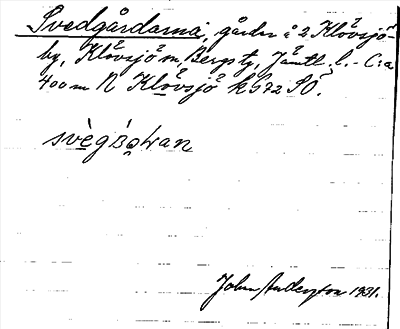 Svedgårdarna, gårdar i 2 Klövsjö-
by, Klövsjö sn, Bergs tg, Jämtl. l. - C:a
400 m N Klövsjö k 572 SO.
svègɔ̀ɷɽan
John Andersson 1931.